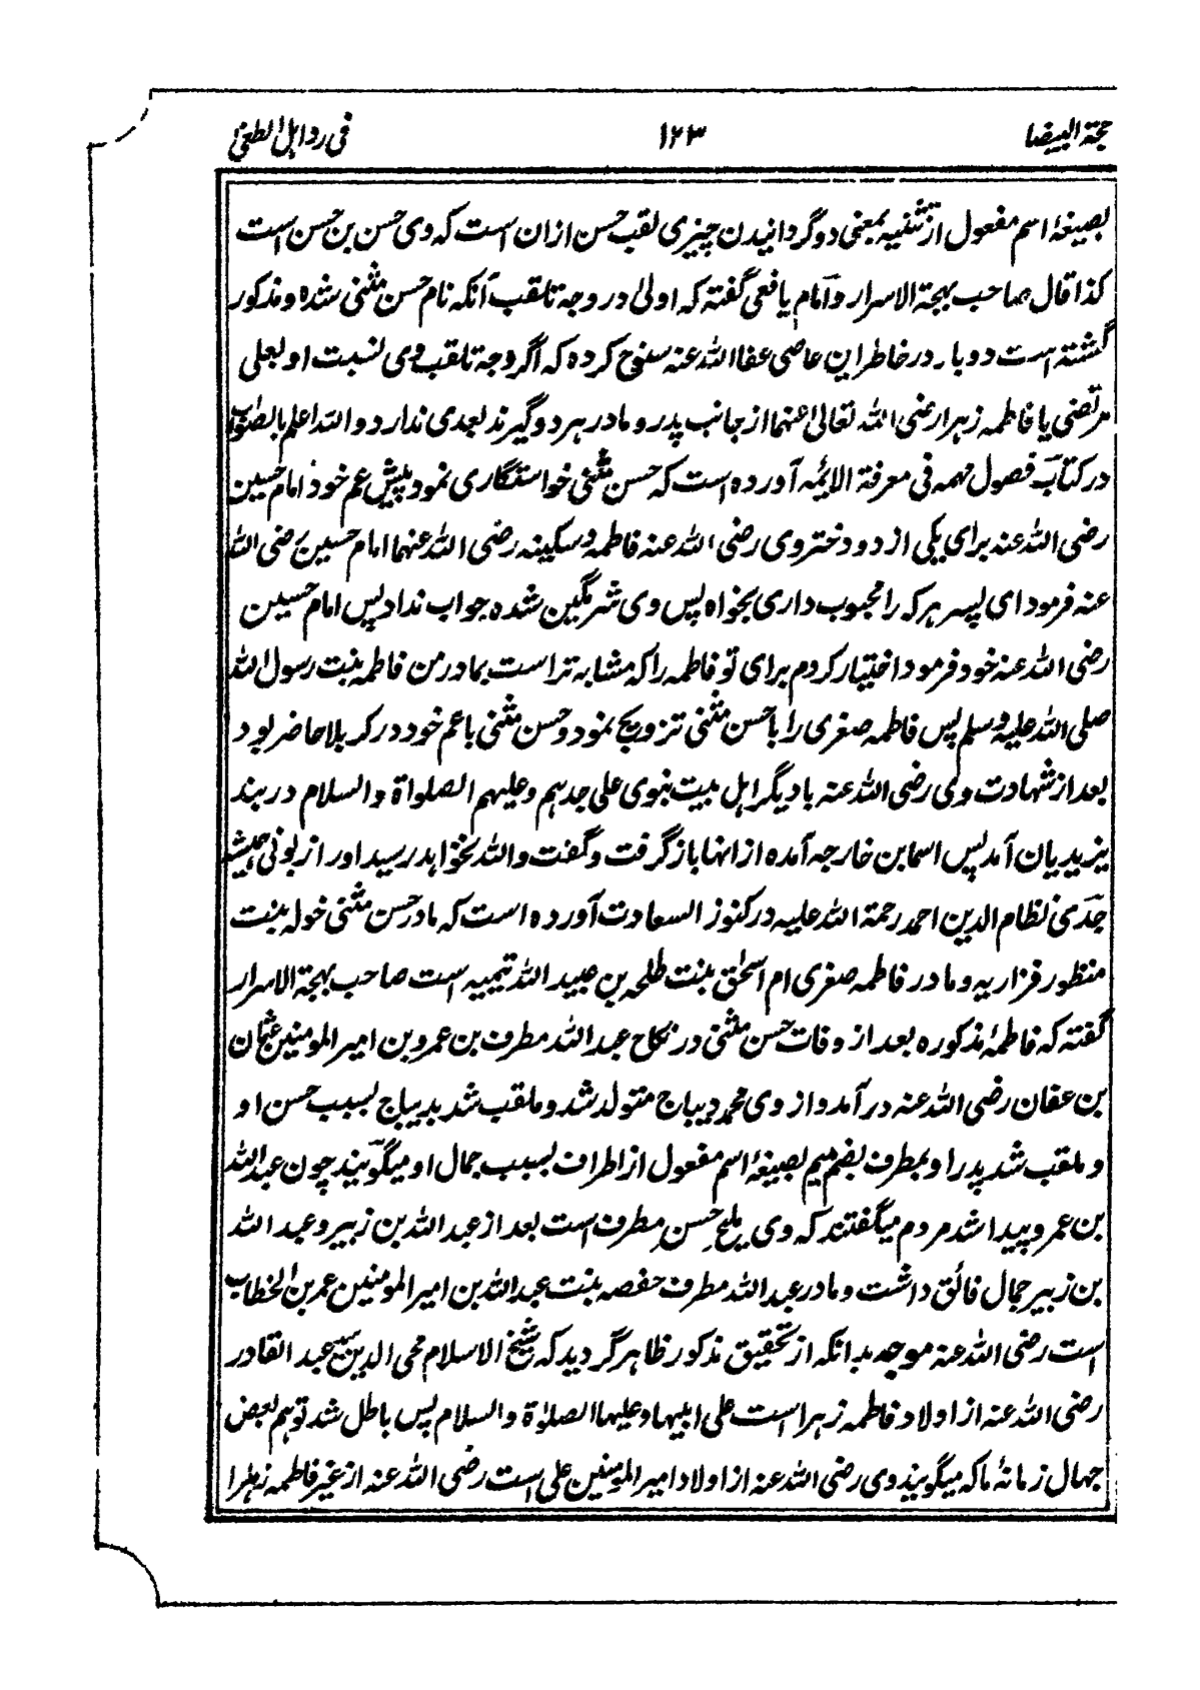 حجة البیضا ۱۲۳ فی رد اہل الطغی
بصیغۂ اسم مفعول از تثنیہ بمعنی دو گردانیدن چیزی لقب حسن ازان است کہ وی حسن بن حسن است
کذا قال صاحب بہجة الاسرار و امام یافعی گفتہ کہ اولیٰ در وجہ تلقب آنکہ نام حسن مثنی شدہ و مذکور
گشتہ است دو بار در خاطر این عاصی عفا اللہ عنہ سنوح کردہ کہ اگر وجہ تلقب وی نسبت او بعلی
مرتضی یا فاطمہ زہرا رضی اللہ تعالیٰ عنہما از جانب پدر و مادر ہر دو گیرند بعدی ندارد و اللہ اعلم بالصواب
در کتاب فصول مہمہ فی معرفة الایمہ آوردہ است کہ حسن مثنی خواستگاری نمود پیش عم خود امام حسین
رضی اللہ عنہ برای یکی از دو دختر وی رضی اللہ عنہ فاطمہ و سکینہ رضی اللہ عنہما امام حسین رضی اللہ
عنہ فرمود ای پسر ہر کہ را محبوب داری بخواہ پس وی شرمگین شدہ جواب نداد پس امام حسین
رضی اللہ عنہ خود فرمود اختیار کردم برای تو فاطمہ را کہ مشابہ تر است بمادر من فاطمہ بنت رسول اللہ
صلی اللہ علیہ وسلم پس فاطمہ صغری را با حسن مثنی تزویج نمود و حسن مثنی با عم خود در کربلا حاضر بود
بعد از شہادت وی رضی اللہ عنہ با دیگر اہل بیت نبوی علی جدہم و علیہم الصلواة والسلام در بند
یزیدیان آمد پس اسما بن خارجہ آمدہ از انہا باز گرفت و گفت واللہ نخواہد رسید اورا از بونی ہمیشہ
جدی نظام الدین احمد رحمة اللہ علیہ در کنوز السعادت آوردہ است کہ مادر حسن مثنی خولہ بنت
منظور فزاریہ و مادر فاطمہ صغری ام اسحٰق بنت طلحہ بن عبید اللہ تیمیہ است صاحب بہجة الاسرار
گفتہ کہ فاطمۂ مذکورہ بعد از وفات حسن مثنی در نکاح عبد اللہ مطرف بن عمرو بن امیر المومنین عثمان
بن عفان رضی اللہ عنہ در آمد و از وی محمد دیباج متولد شد و ملقب شد بدیباج بسبب حسن او
و ملقب شد پدر او بمطرف بضم میم بصیغۂ اسم مفعول از اطراف بسبب جمال او میگویند چون عبد اللہ
بن عمرو پیدا شد مردم میگفتند کہ وی ملیح حسن مطرف است بعد از عبد اللہ بن زبیر و عبد اللہ
بن زبیر جمال فائق داشت و مادر عبد اللہ مطرف حفصہ بنت عبد اللہ بن امیر المومنین عمر بن الخطاب
است رضی اللہ عنہ موجد بدانکہ از تحقیق مذکور ظاہر گردید کہ شیخ الاسلام محی الدین سید عبد القادر
رضی اللہ عنہ از اولاد فاطمہ زہرا است علی ابیہا و علیہا الصلوٰة والسلام پس باطل شد توہم بعض
جہال زمانۂ ما کہ میگویند وی رضی اللہ عنہ از اولاد امیر المومنین علی است رضی اللہ عنہ از غیر فاطمہ زہرا